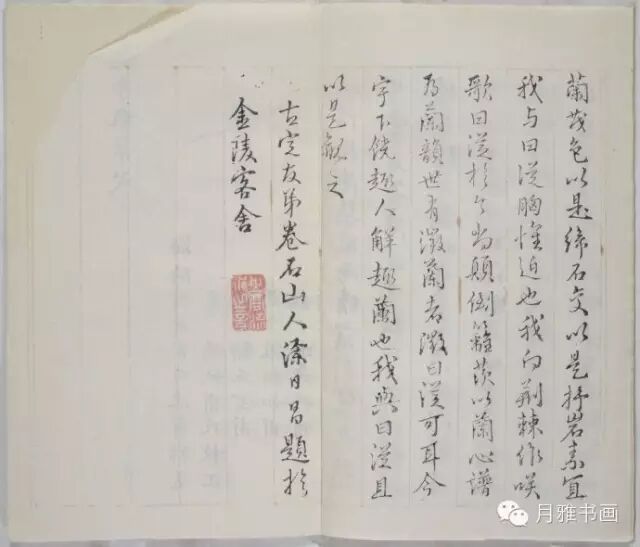 蘭茂色以是締石交以是抒岩素宜
我与日從胸懷迫也我向荆棘作咲
歌日從於今当顛倒籬茨以蘭心譜
为蘭韻世有澂蘭者澂日從可耳今
宇下饶趣人解趣蘭也我與日從且
以是觀之
古定友弟卷石山人涂日昌題於
金陵客舍
月雅书画